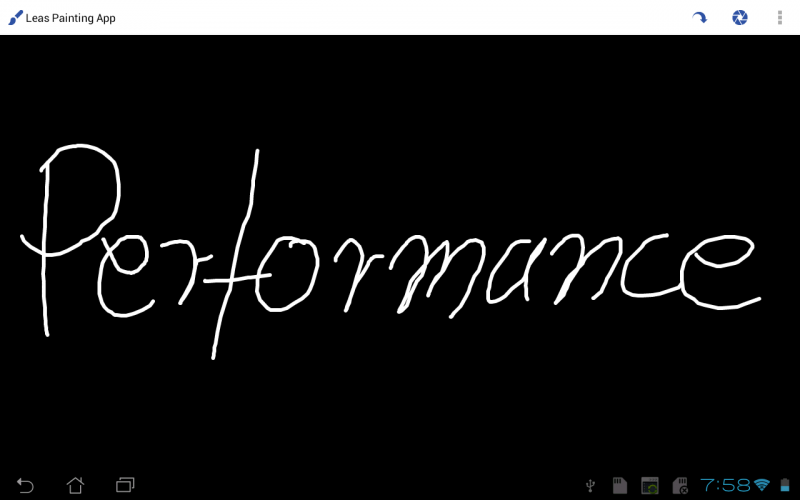 Leas Painting App
Performance
7:58